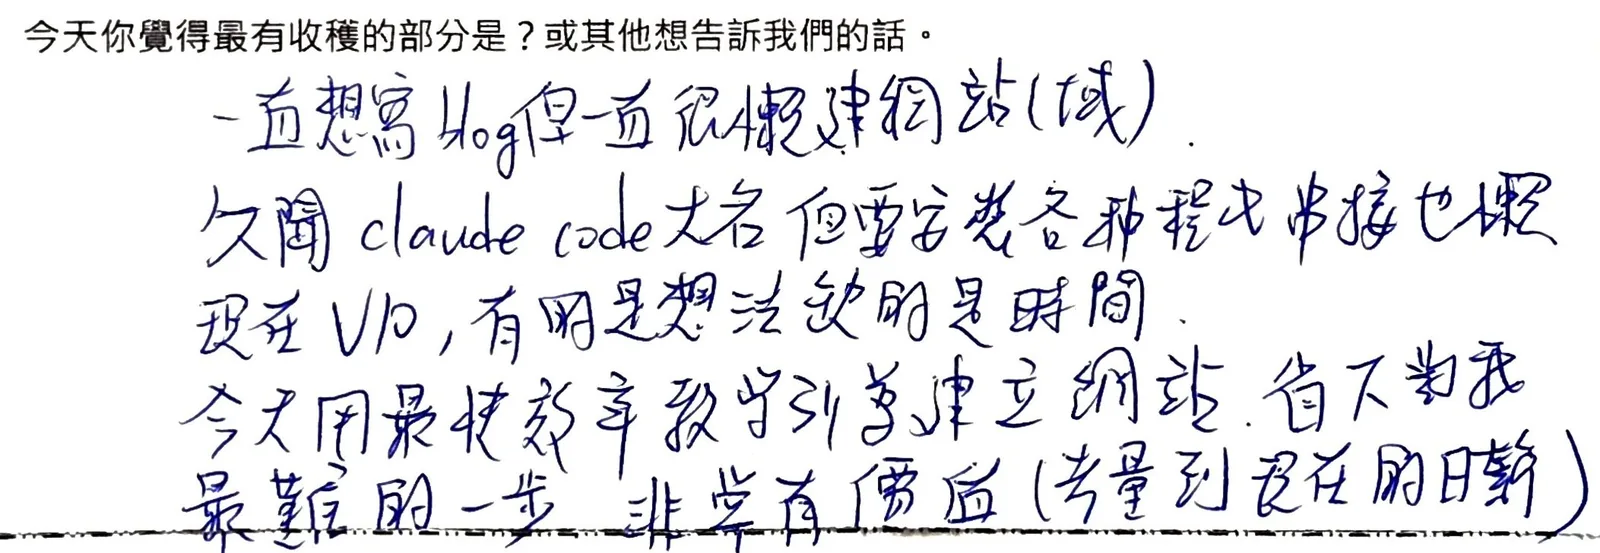 今天你覺得最有收穫的部分是？或其他想告訴我們的話。
一直想寫 blog 但一直很懶建網站(域).
久聞 claude code 大名 但要安裝各種程式串接也懶
現在 VP, 有的是想法缺的是時間.
今天用最快效率教學引導建立網站. 省下對我
最難的一步 非常有價值 (考量到現在的日薪)